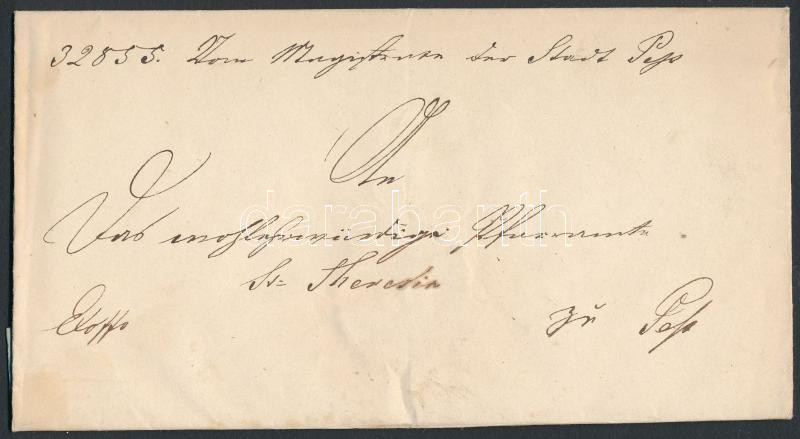 32855. Vom Magistrate der Stadt Pest
An
Das wohlehrwürdige Pfarramte
St= Theresia
zu Pest
darabanth